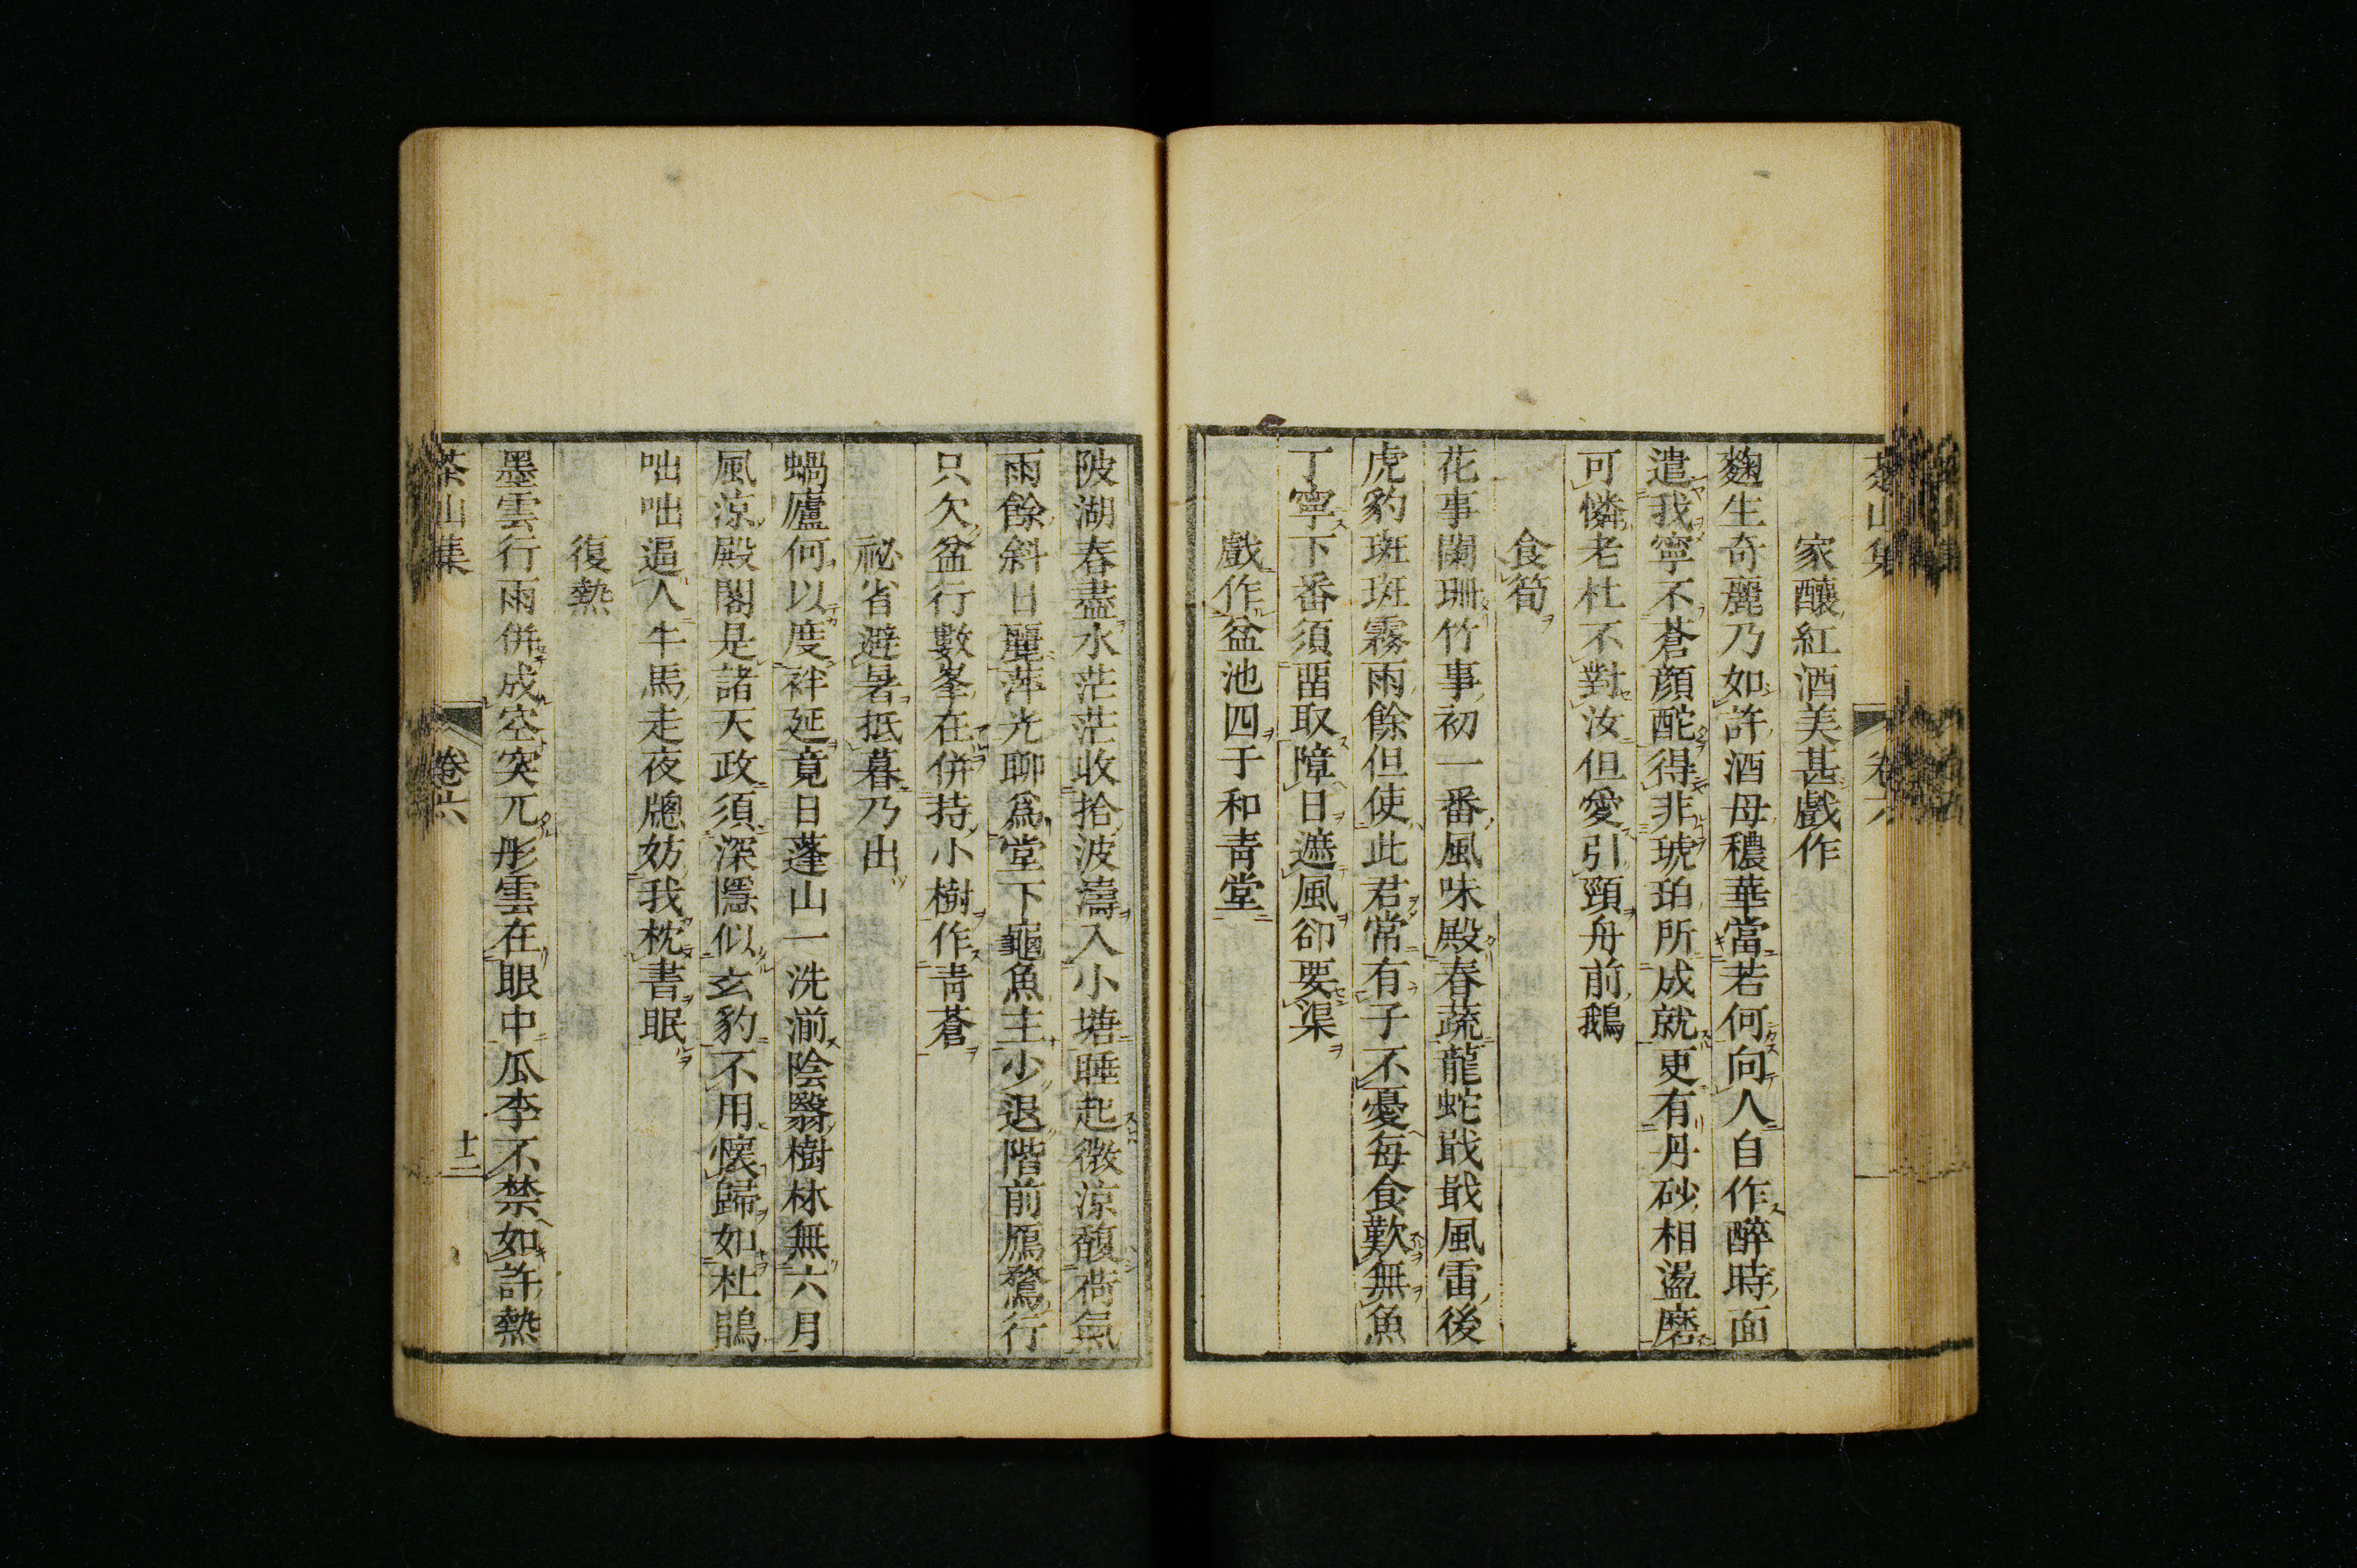 茶山集 卷六
家釀紅酒美甚戲作
麴生奇麗乃如許酒母穠華當若何向人自作醉時面
遣我寧不蒼顔酡得非琥珀所成就更有丹砂相盪磨
可憐老杜不對汝但愛引頸舟前鵝
食筍
花事闌珊竹事初一番風味殿春蔬龍蛇戢戢風雷後
虎豹斑斑霧雨餘但使此君常有子不憂每食歎無魚
丁寧下番須畱取障日遮風卻要渠
戲作盆池四于和靑堂
陂湖春盡水茫茫收拾波濤入小塘睡起微涼馥荷氣
雨餘斜日麗萍光聊爲堂下龜魚主少退階前鴈鶩行
只欠盆行數峯在併持小樹作靑蒼
祕省避暑抵暮乃出
蝸廬何以度袢延竟日蓬山一洗湔陰翳樹林無六月
風涼殿閣是諸天政須深隱似玄豹不用懷歸如杜鵑
咄咄逼人牛馬走夜牕妨我枕書眠
復熱
墨雲行雨併成空突兀彤雲在眼中瓜李不禁如許熱
茶山集 卷六 十二